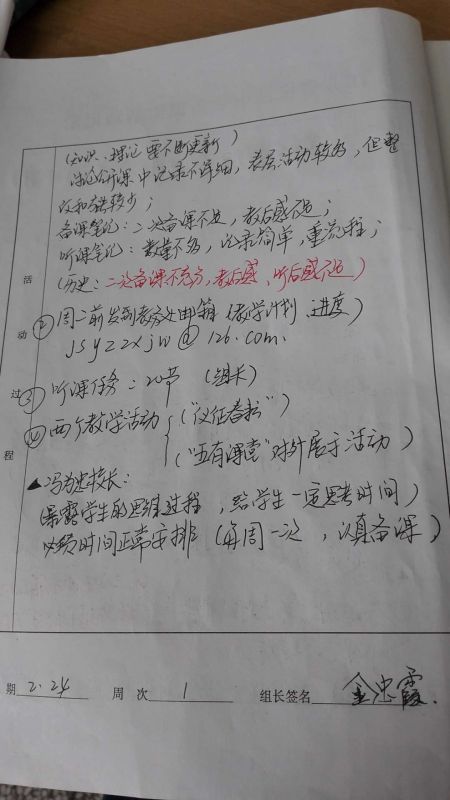 (知识、理论要不断更新)
讨论公开课中记录不详细，表层活动较多，但整
改和落实较少；
备课笔记：二次备课不足，教后感不足；
听课笔记：数量不多，记录简单，重流程；
(历史：二次备课不充分，教后感、听后感不足)
② 周二前发到教务处邮箱(教学计划、进度)
jsyzzxjw@126.com.
③ 听课任务：20节 (组长)
④ 两个教学活动 ("仪征春秋")
("五有课堂"对外展示活动)
▲冯校长：
(暴露学生的思维过程，给学生一定思考时间)
时间正常安排 (每周一次，认真备课)
活动过程
期 2.24 周次 1 组长签名 金忠霞.